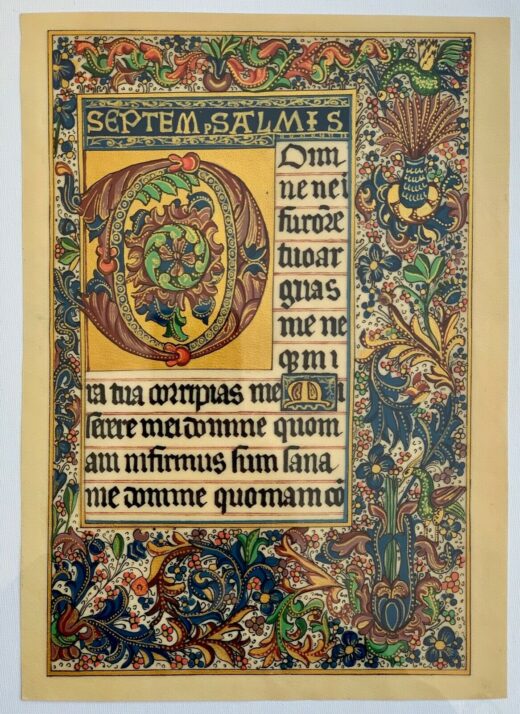 SEPTEM PSALMIS
D Omi
ne nei
furore
tuo ar
guas
me ne
qꝫ m i
ra tua corripias me Mi
serere mei domine quoni
am infirmus sum sana
me domine quoniam cō